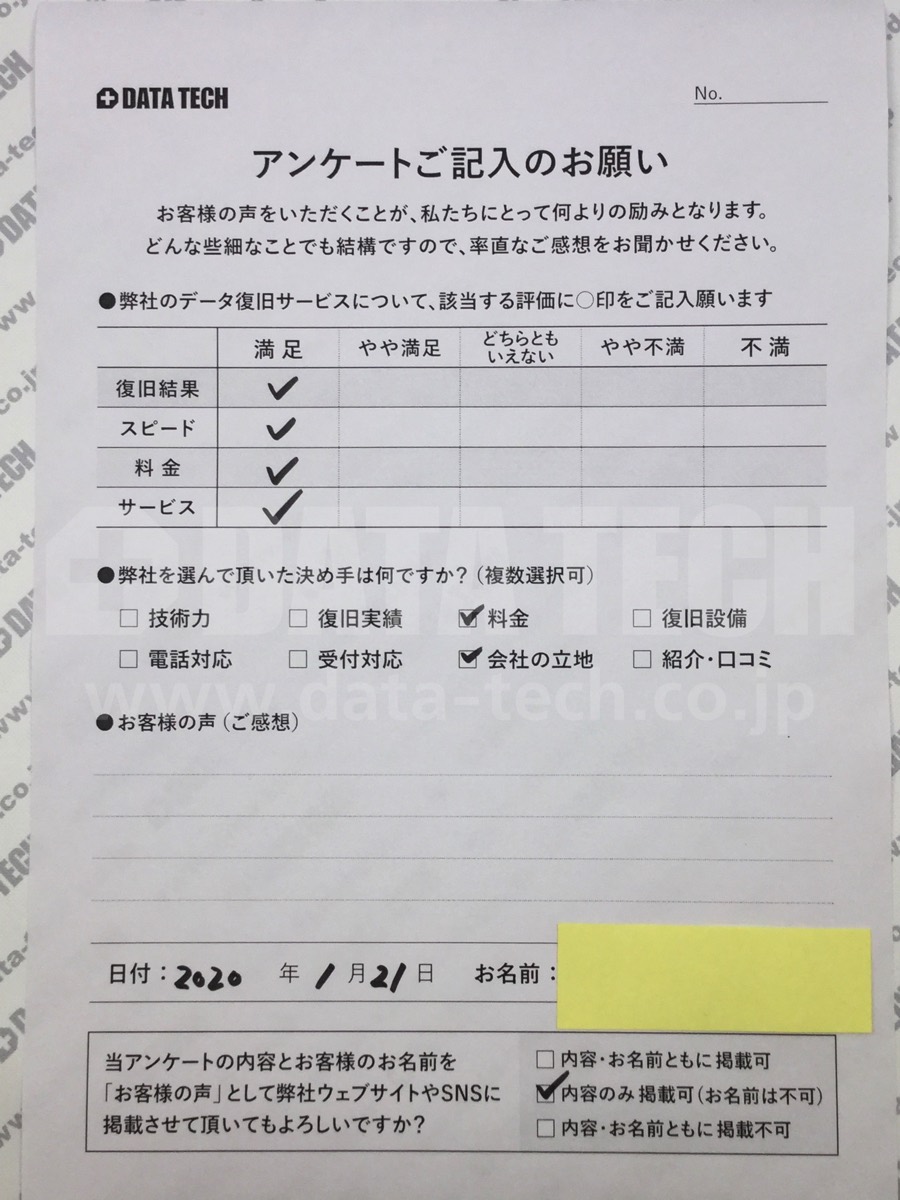 DATA TECH
No.
アンケートご記入のお願い
お客様の声をいただくことが、私たちにとって何よりの励みとなります。
どんな些細なことでも結構ですので、率直なご感想をお聞かせください。
●弊社のデータ復旧サービスについて、該当する評価に○印をご記入願います
満足 やや満足 どちらともいえない やや不満 不満
復旧結果 ✓
スピード ✓
料金 ✓
サービス ✓
DATA TECH
●弊社を選んで頂いた決め手は何ですか?(複数選択可)
□ 技術力 □ 復旧実績 ☑ 料金 □ 復旧設備
□ 電話対応 □ 受付対応 ☑ 会社の立地 □ 紹介・口コミ
www.data-tech.co.jp
●お客様の声(ご感想)
日付:2020 年 1 月 21 日 お名前:
当アンケートの内容とお客様のお名前を
「お客様の声」として弊社ウェブサイトやSNSに
掲載させて頂いてもよろしいですか?
□ 内容・お名前ともに掲載可
☑ 内容のみ掲載可(お名前は不可)
□ 内容・お名前ともに掲載不可